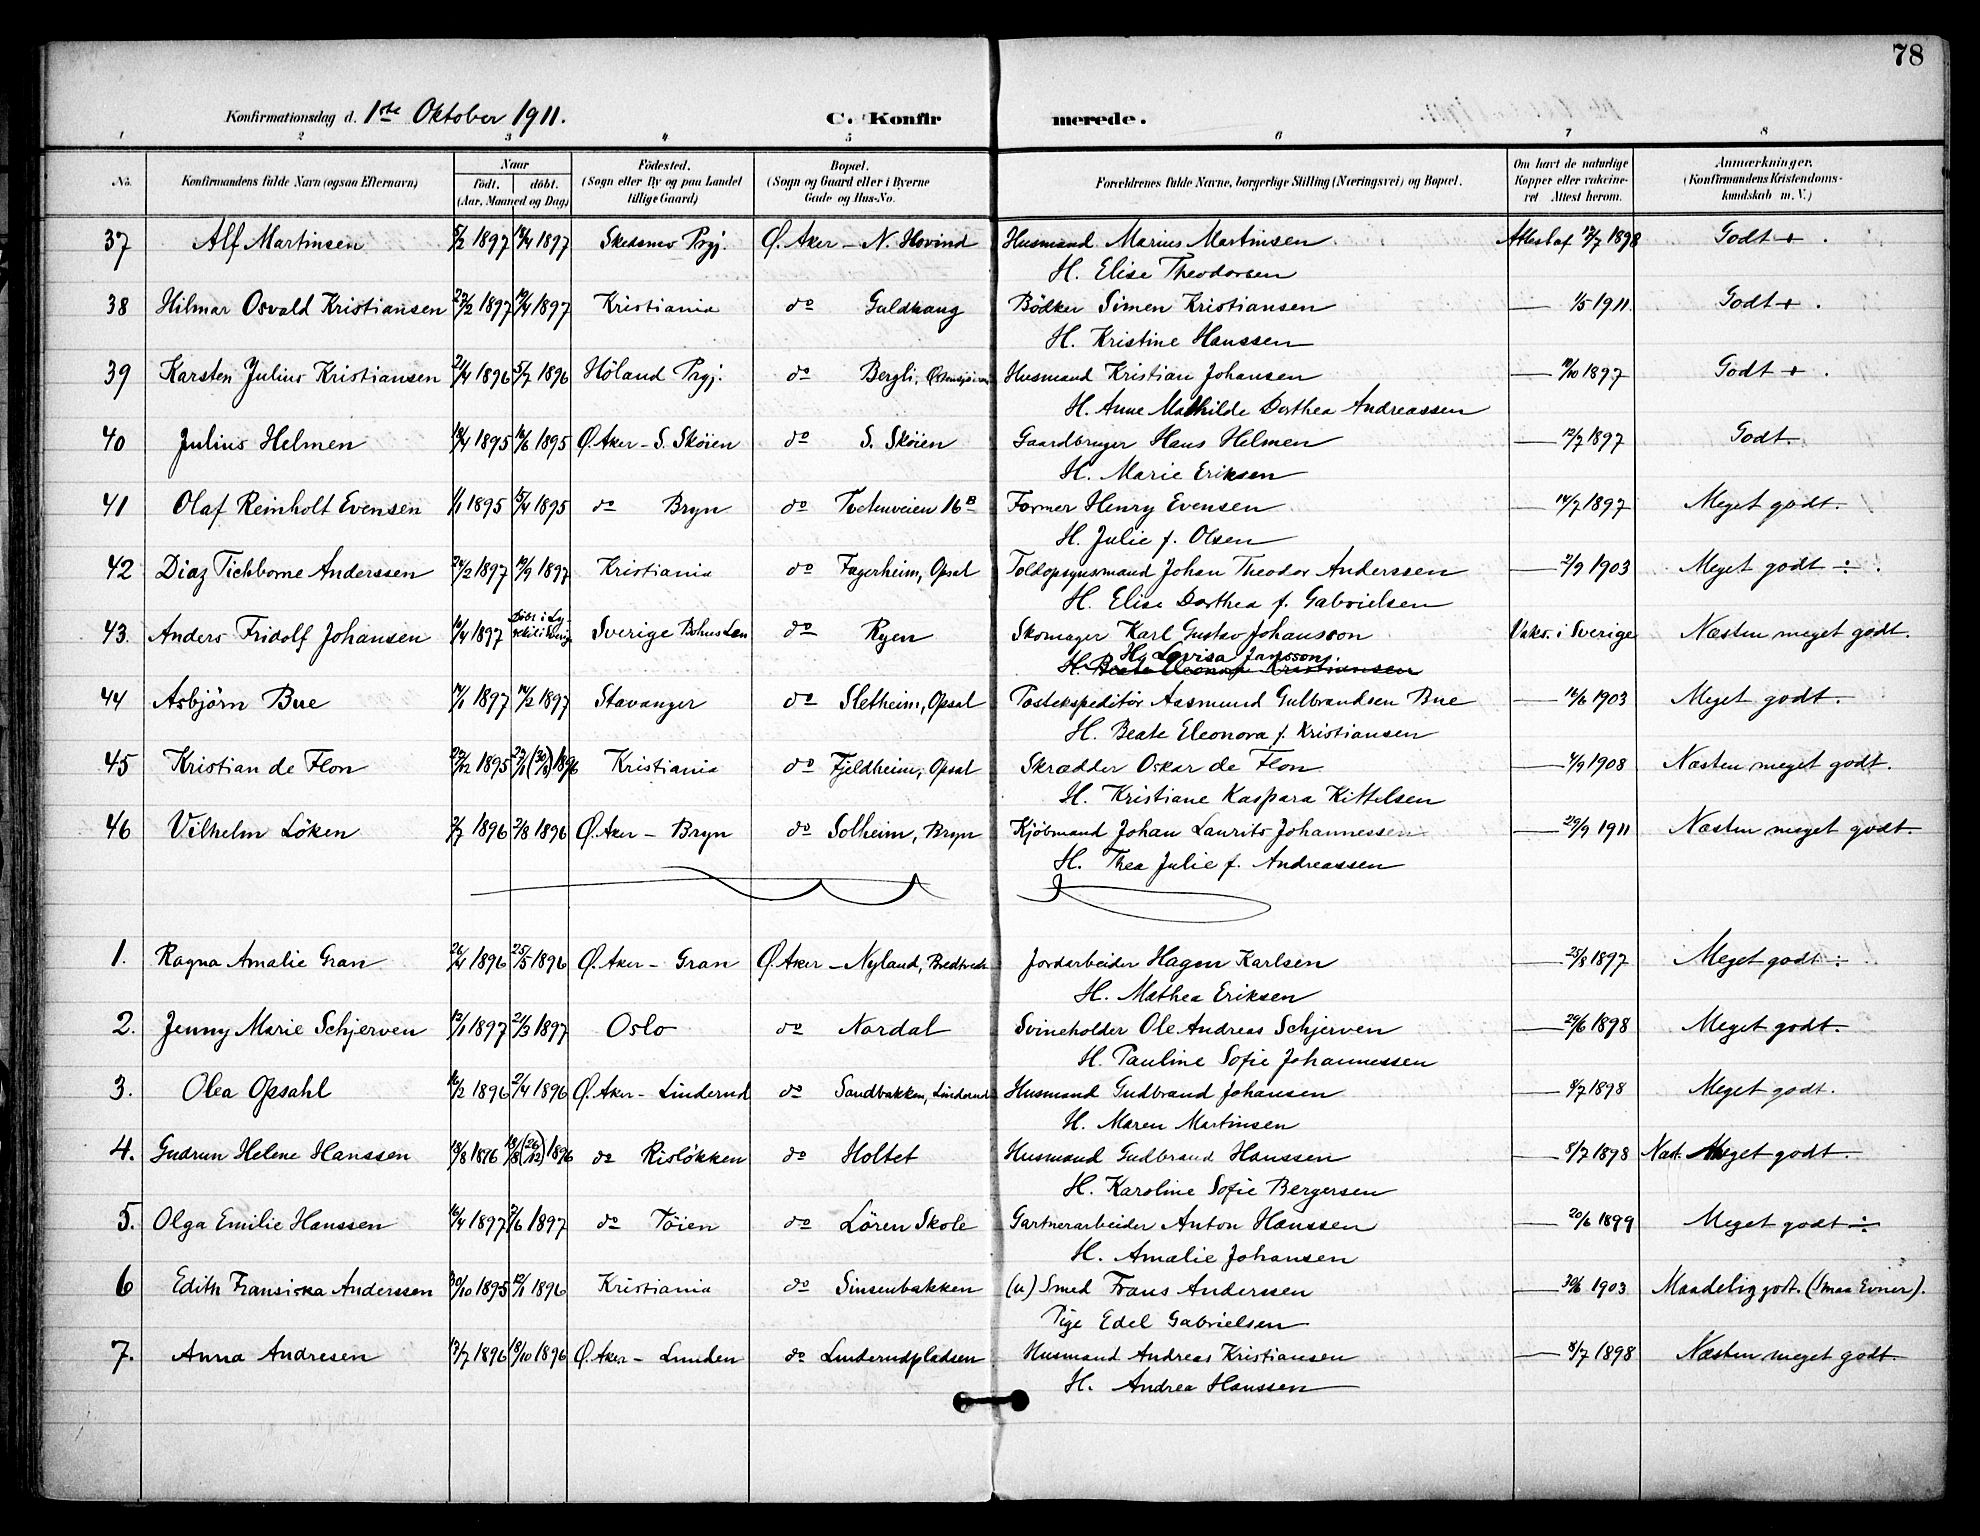 78
Konfirmationsdag d. 1ste Oktober 1911. C. Konfir merede.
1 2 3 4 5 6 7 8
No. Konfirmandens fulde Navn (ogsaa Efternavn) Naar födt. döbt. (Aar, Maaned og Dag) Födested. (Sogn eller By og paa Landet tillige Gaard) Bopæl. (Sogn og Gaard eller i Byerne Gade og Hus-No. Forældrenes fulde Navne, borgerlige Stilling (Næringsvei) og Bopæl. Om havt de naturlige Kopper eller vakcineret Attest herom. Anmærkninger. (Konfirmandens Kristendomskundskab m. V.)
37 Alf Martinsen 5/2 1897 /4 1897 Skedsmo Prgj. Ø. Aker - N. Hovind Husmand Marius Martinsen Attest af 12/7 1898 Godt + .
H. Elise Theodorsen
38 Hilmar Osvald Kristiansen /2 1897 /4 1897 Kristiania do Guldhaug Bödker Simen Kristiansen — 1/5 1911. Godt + .
H. Kristine Hanssen
39 Karsten Julius Kristiansen 21/4 1896 5/7 1896 Höland Prgj. do Bergli, Husmand Kristian Johansen — /10 1897 Godt + .
H. Anne Mathilde Dorthea Andreassen
40 Julius Helmen /4 1895 /6 1895 Ø. Aker - S. Sköien do S. Sköien Gaardbruger Hans Helmen — 12/7 1897 Godt.
H. Marie Eriksen
41 Olaf Reinholt Evensen 1/1 1895 15/4 1895 do Bryn do Tvetenveien 16 B Former Henry Evensen — 14/7 1897 Meget godt.
H. Julie f. Olsen
42 Diaz Tichborne Anderssen 24/2 1897 /9 1897 Kristiania do Fagerheim, Opsal Toldopsynsmand Johan Theodor Anderssen — 2/9 1903 Meget godt ÷ .
H. Elise Dorthea f. Gabrielsen
43. Anders Fridolf Johansen /4 1897 Döbt i Ly- Sverige Bohus Len do Ryen Skomager Karl Gustav Johansson Vaks. i Sverige Næsten meget godt.
H. Lovisa Jansson
H. Beate Eleonora Kristiansen
44 Asbjörn Bue /1 1897 14/2 1897 Stavanger do Sletheim, Opsal Postekspeditör Aasmund Gulbrandsen Bue — 16/6 1903 Meget godt.
H. Beate Eleonora f. Kristiansen
45 Kristian de Flon /12 1895 1896 Kristiania do Fjeldheim, Opsal Skrædder Oskar de Flon — 4/9 1908 Næsten meget godt.
H. Kristiane Kaspara Kittelsen
46 Vilhelm Löken 2/7 1896 2/8 1896 Ø. Aker - Bryn do Solheim, Bryn Kjöbmand Johan Laurits Johannessen — 29/9 1911 Næsten meget godt.
H. Thea Julie f. Andreassen
1. Ragna Amalie Gran 26/4 1896 25/5 1896 Ø. Aker - Gran Ø. Aker - Nyland, Bredtvedt Jordarbeider Hagen Karlsen — 25/8 1897 Meget godt ÷
H. Mathea Eriksen
2. Jenny Marie Schjerven 12/1 1897 21/3 1897 Oslo do Nordal Svineholder Ole Andreas Schjerven — 29/6 1898 Meget godt.
H. Pauline Sofie Johannessen
3. Olea Opsahl 16/2 1896 2/4 1896 Ø. Aker - Linderud do Sandbakken, Linderud Husmand Gudbrand Johansen — 8/7 1898 Meget godt.
H. Maren Martinsen
4. Gudrun Helene Hanssen 18/8 1896 18/8 (26/12) 1896 do Rislökken do Holtet Husmand Gudbrand Hanssen — 8/7 1898 Næst. Meget godt.
H. Karoline Sofie Bergersen
5. Olga Emilie Hanssen 16/4 1897 7/6 1897 do Töien do Lören Skole Gartnerarbeider Anton Hanssen — 20/6 1899 Meget godt ÷
H. Amalie Johansen
6 Edith Fransiska Anderssen 30/10 1895 12/1 1896 Kristiania do Sinsenbakken (u) Smed Frans Anderssen — 30/6 1903 Maadelig godt. (Smaa Evner).
Pige Edel Gabrielsen
7. Anna Andresen 13/7 1896 18/10 1896 Ø. Aker - Lunden do Linderudpladsen Husmand Andreas Kristiansen — 8/7 1898 Næsten meget godt.
H. Andrea Hanssen